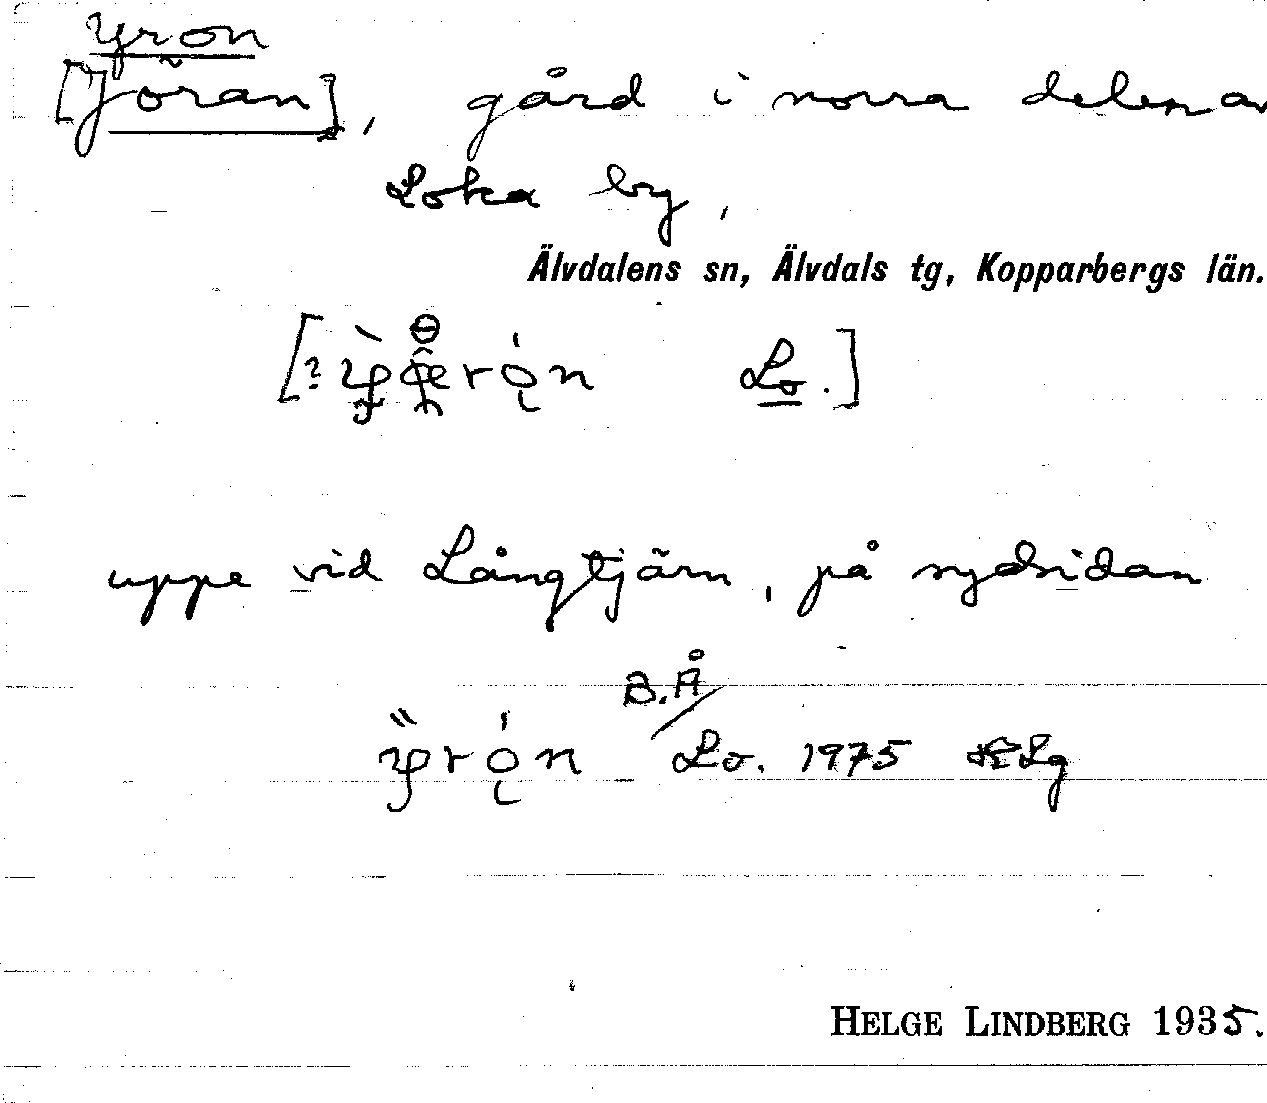 Yron
[Jöran], gård i norra delen av
Loka by,
Älvdalens sn, Älvdals tg, Kopparbergs län.
Lo.]
uppe vid Långtjärn, på sydsidan
B.Å
Lo. 1975
HELGE LINDBERG 1935.